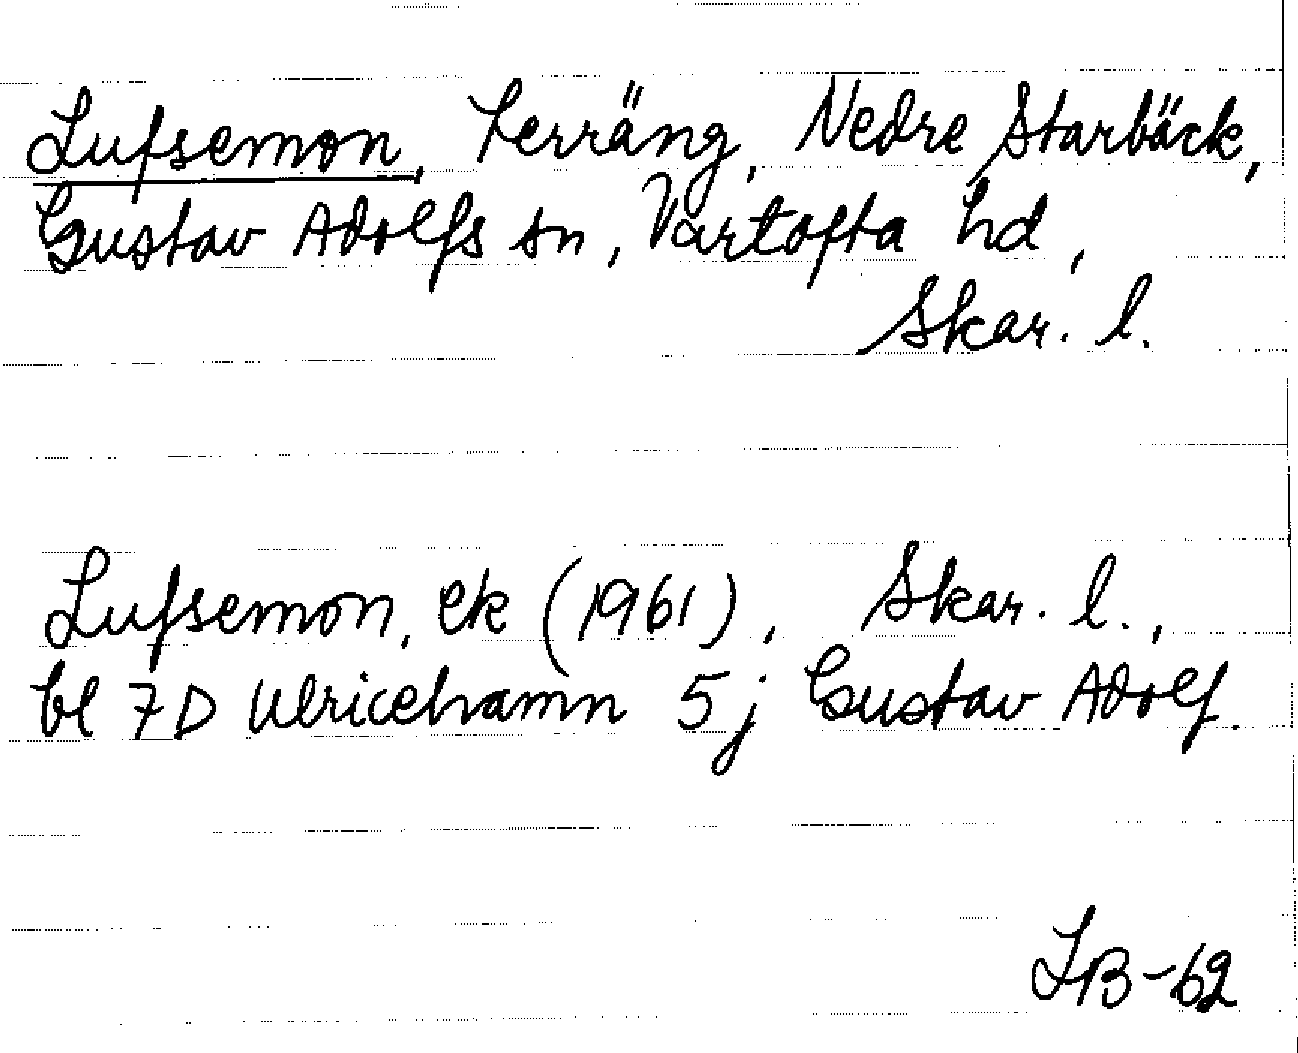 Lufsemon, Terräng, Nedre Starbäck,
Gustav Adolfs sn, Vartofta hd,
Skar. l.
Lufsemon, ek (1961), Skar. l.,
bl 7D Ulricehamn 5j Gustav Adolf.
LB-62